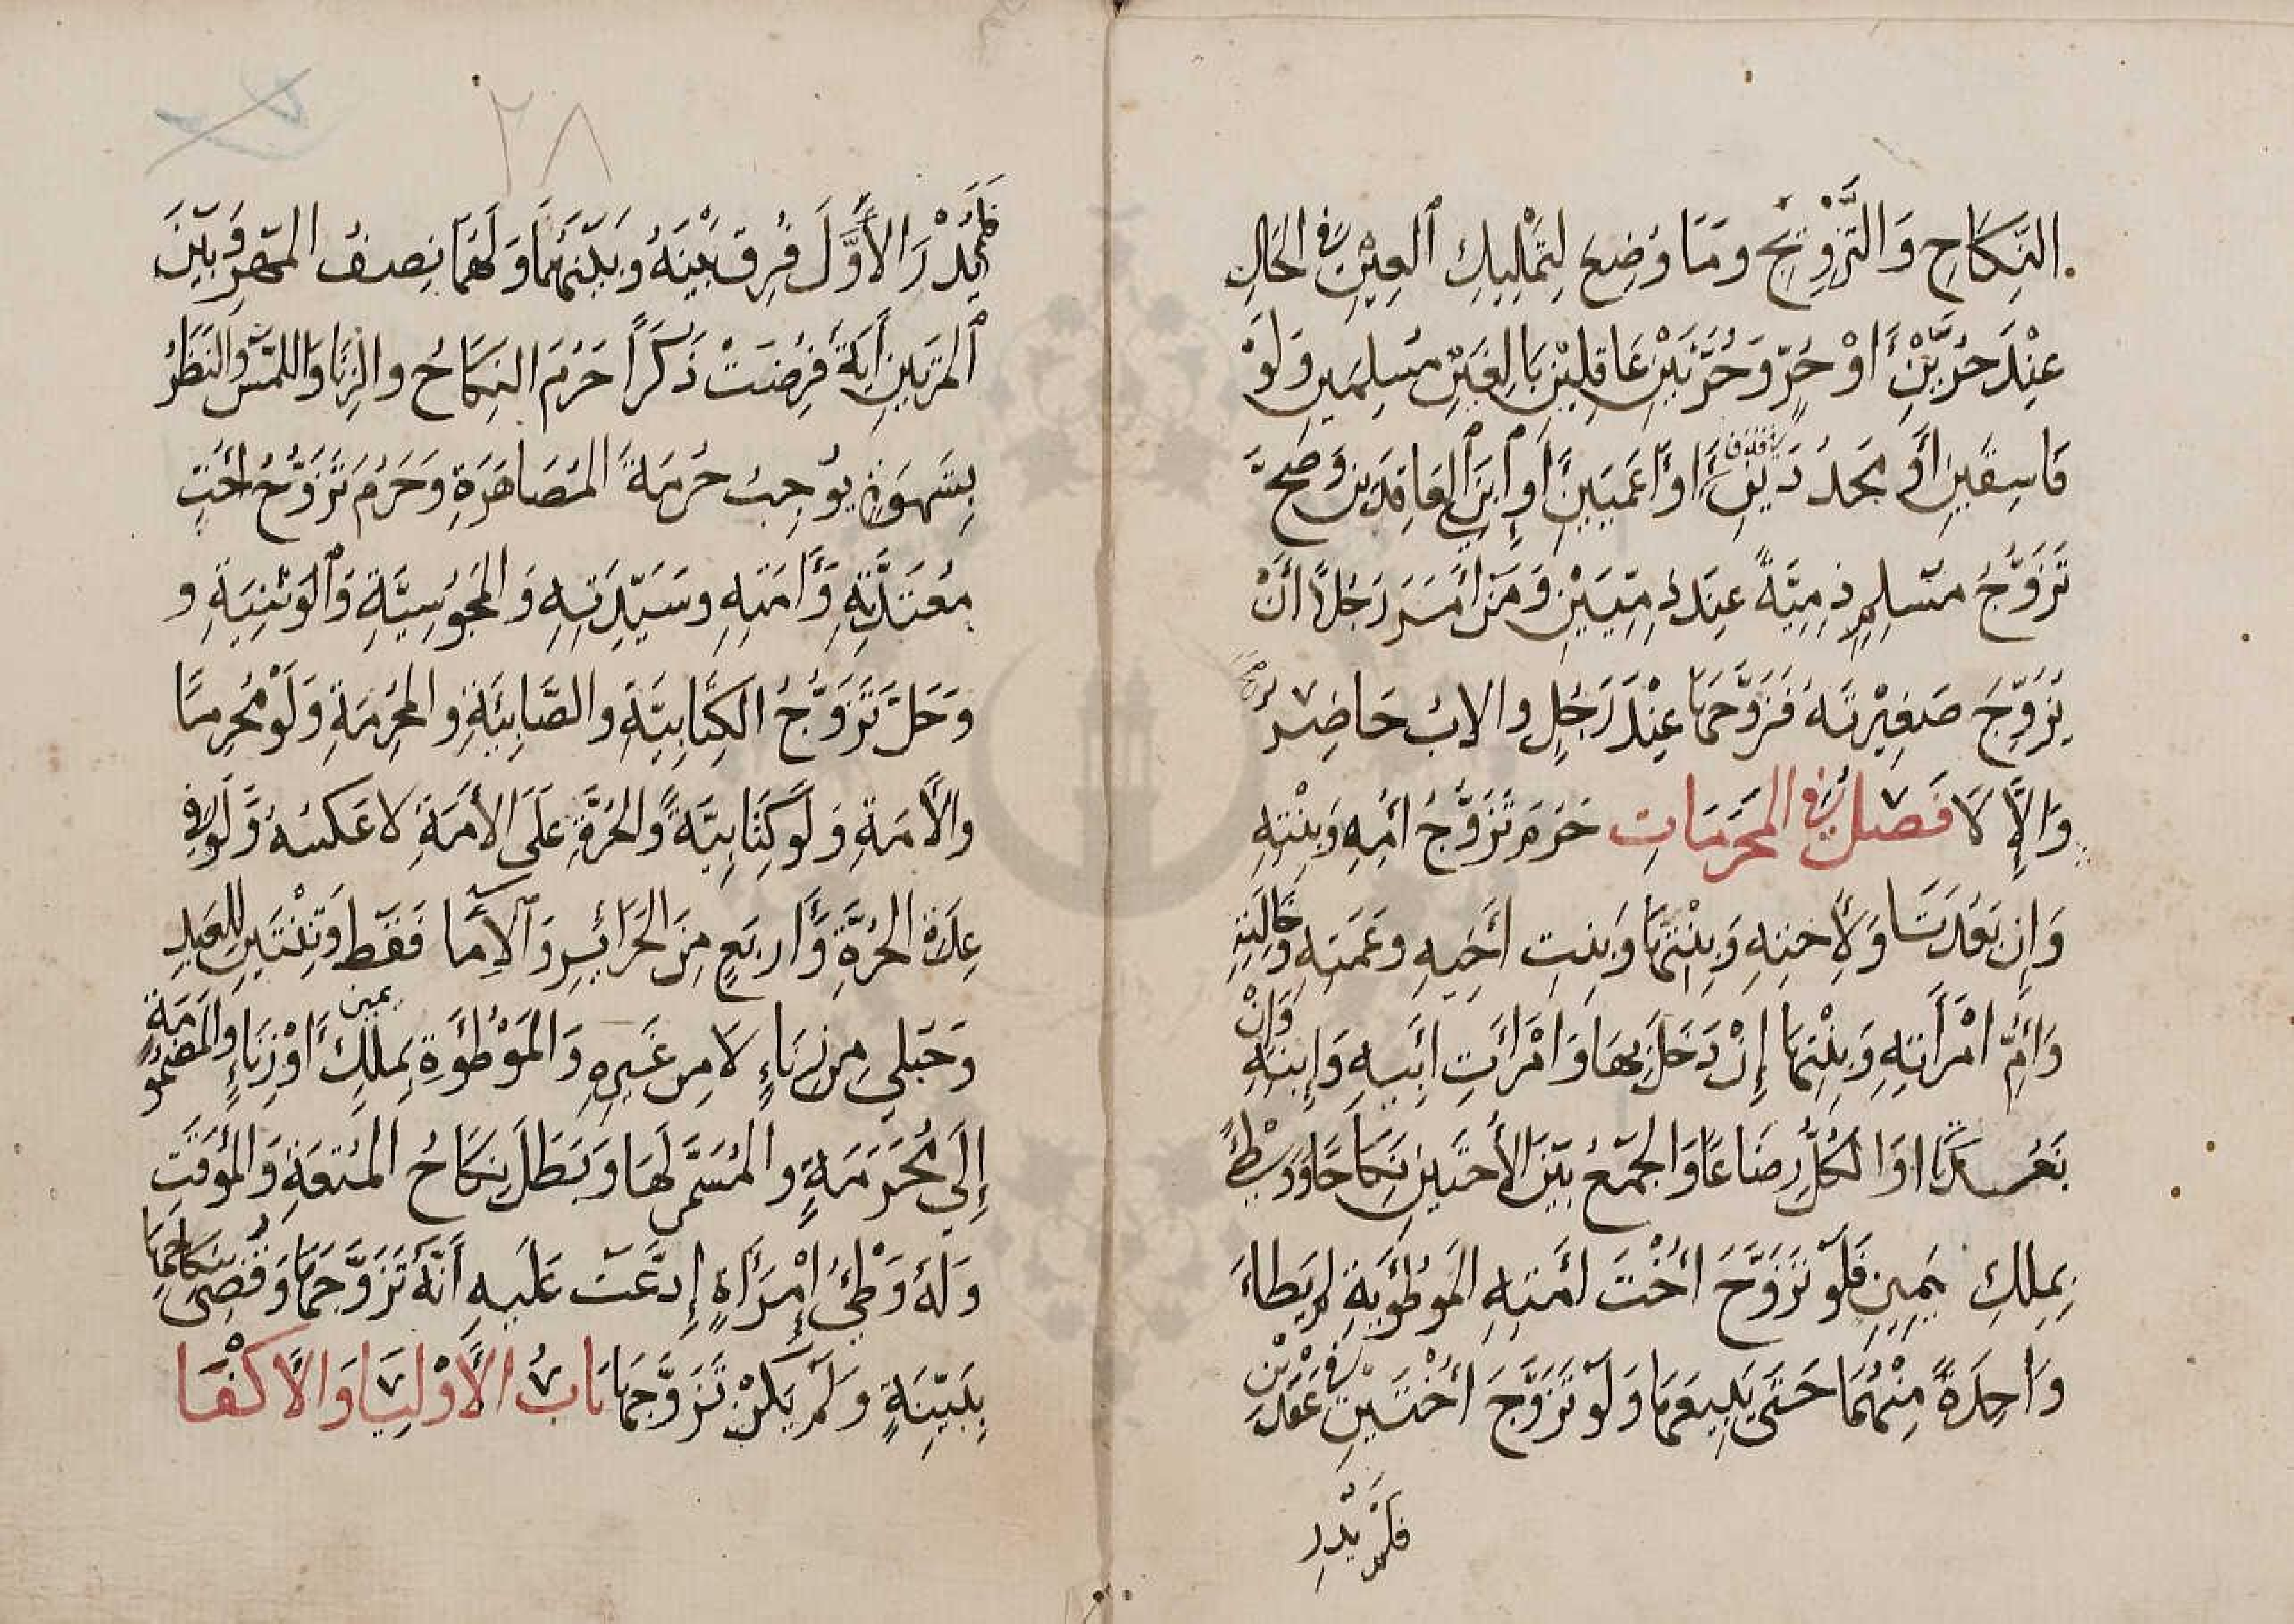 النِّكَاحِ وَالتَّزْوِيْجِ ومَا وُضِعَ لِتَمْلِيكِ العِيْنِ فِي الحَالِ
عِنْدَ حُرَّيْنِ أَوْ حُرٍّ وَحُرَّتَيْنِ عَاقِلِيْنِ بَالِغَيْنِ مسْلِمَينِ وَلَوْ
فَاسِقَينِ أَو مَحدُودَينِ فِي قذف أَوْ أَعْمَيَينِ أَوِ ابنَيِ العَاقِدَينِ وَصَحَّ
تَزَوُّجُ مسْلِمٍ ذِمِيَّةً عِنَد ذِمِّيَينِ وَمَن أَمَرَ رَجُلاً أَنْ
يُزَوِّجَ صَغِيْرتَهُ فَزَوَّجَهَا عِنْدَ رَجُلٍ والابُ حَاضِر صَحَّ
وَاِلَّا لَا فَصْل فِي المحَرمَاتِ حَرُمَ تَزَوُّجُ أُمِهِ وَبِنْتِهِ
وَاِن بَعُدَتَا وَأُختِهِ وَبِنْتِهَا وَبنتِ أَخِيهِ وعَمَتِهِ وَخَالَتِهِ
وَأُمِّ امْرَأَتِهِ وَبِنْتِهَا إِنْ دَخَلَ بِهَا وَامْرَأَتِ أَبِيهِ وَإِبنِهِ وَإنْ
بَعُدَا وَالكُلُّ رضَاعًا وَالجَمْعُ بيَنَ الأُختَينِ نِكَاحًا وَوَطئًا
بِملكِ يَمِينٍ فَلَو تَزَوَّجَ أُخْتَ أَمَتِهِ المَوطُؤَةِ لم يَطاءَ
وَاحِدَةً مِنْهُمَا حَتَى يَبِيعَهَا وَلَو تَزَوَّجَ أُخْتَيْنِ فِي عَقْدَيْنِ
فَلَمْ يَدْرِ
٢٨
فَلَم يَدْرِ الأَوَّلَ فُرِق بَيْنَهُ وبَيْنَهُمَا وَلَهُمَا نِصفُ المَهرِ وَبَيْنَ
المَرتَينِ أَيَةً فُرِضَتْ ذَكَرًا حَرُمَ النِكَاحُ والزِّنَا وَاللمْسُ والنَظَرُ
بِشَهوَةٍ يوُجِبُ حُرمَةَ المُصَاهَرَةِ وَحَرُمَ تَزَوُّجُ أُختِ
مُعتَدَّتِهِ وَأَمَتِهِ وسَيِّدَتِهِ وَالمَجَوُسِيَّةِ وَالوَثَنِيَةِ و
وَحَلَّ تَزَوُّجُ الكِتَابِيَّةِ والصَّابِئَةِ والمحُرِمَةِ وَلَوْ مُحْرِمًا
والأَمَةِ وَلَو كِتَابِيَّةً وَالحُرَّةِ عَلَى الأَمَةِ لاعَكسُهُ وَلَو فِي
عِدَة الحُرَّةِ وَأَربَعٍ مِنَ الحَرَائِرِ وَالاِمَا فَقَط وَثِنْتَينِ لِلعَبدِ
وَحَبلي مِن زِنَاءٍ لَا مِن غَيرِهِ وَالمَوْطُؤَةِ بِملكِ يمين أَوْ زِنَاءٍ والمَضمُومَةِ
إِلَى مُحَرَمَةٍ والمُسَمَّى لَهَا وَبَطَلَ نِكَاحُ المُتعَةِ وَالمُؤَقَتِ
وَلَهُ وَطْئُ إمْرَأةٍ إِدَّعَت عَلَيهِ أَنَّهُ تَزَوَّجَهَا وَقُضِيَ بنِكَاحِهَا
بِبَيِّنَةٍ وَلَم يَكُنْ تَزَوَّجَهَا بَابُ الأَوْلِيَا وَالاَكْفَا